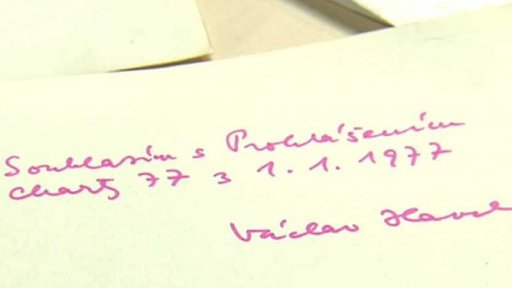 Souhlasím s Prohlášením
Charty 77 z 1. 1. 1977
Václav Havel